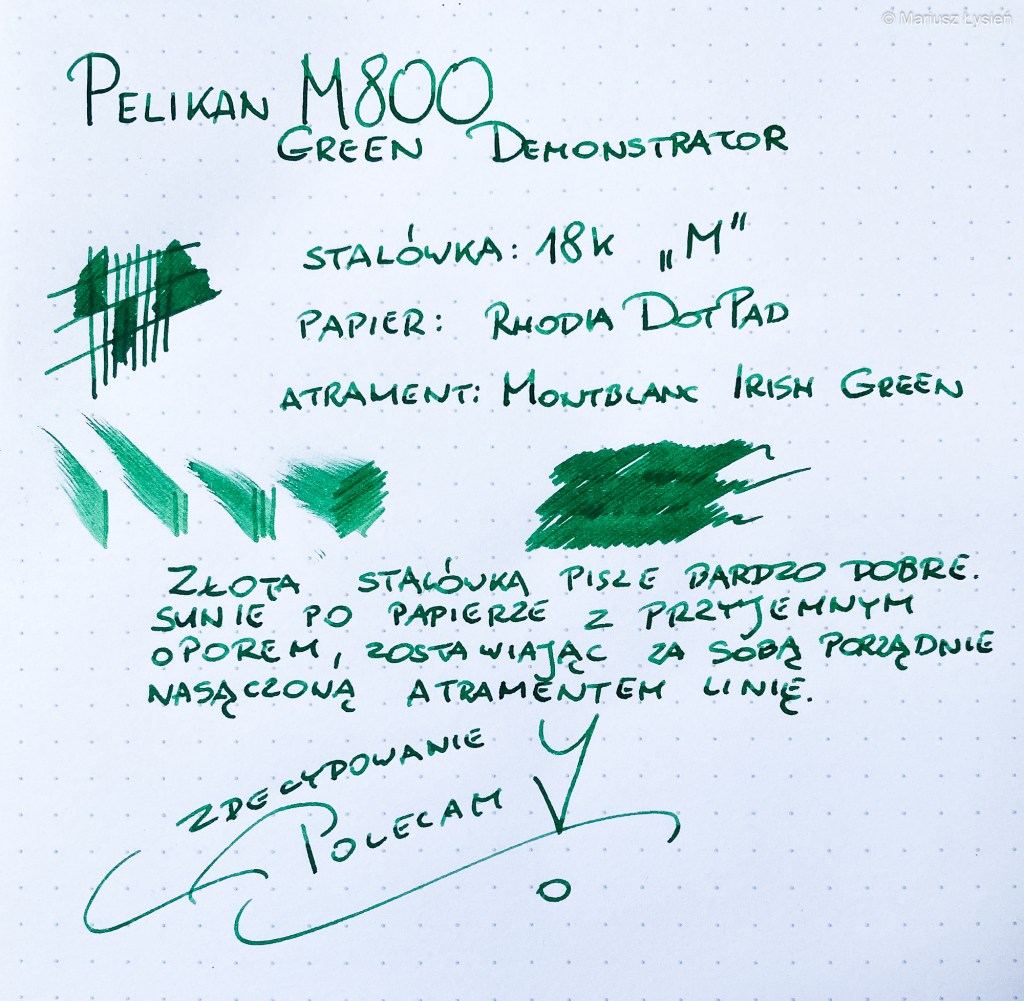 © Mariusz Łysień
PELIKAN M800
GREEN DEMONSTRATOR
STALÓWKA: 18K „M”
PAPIER: RHODIA DOTPAD
ATRAMENT: MONTBLANC IRISH GREEN
ZŁOTA STALÓWKA PISZE BARDZO DOBRE.
SUNIE PO PAPIERZE Z PRZYJEMNYM
OPOREM, ZOSTAWIAJĄC ZA SOBĄ PORZĄDNIE
NASĄCZONĄ ATRAMENTEM LINIĘ.
ZDECYDOWANIE
POLECAM!